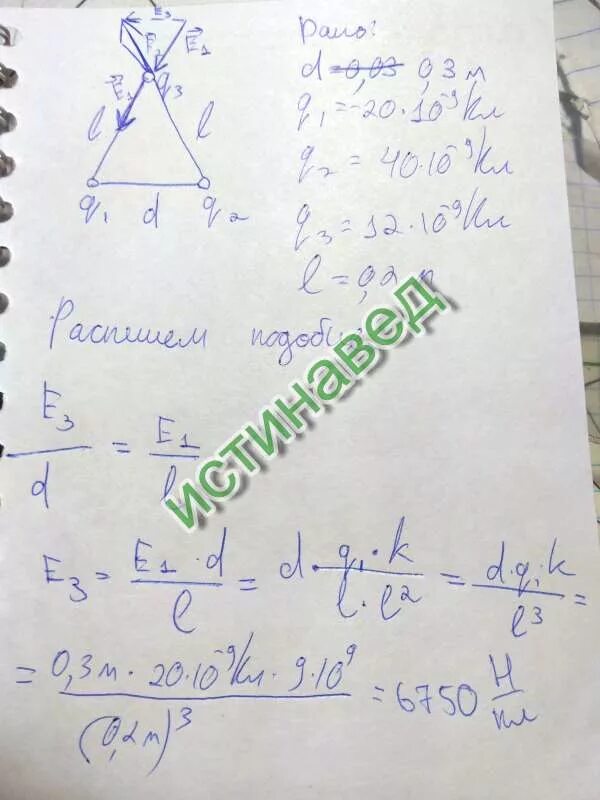 E₃
E₂ E₁
E₁ q₃
l l
q₁ d q₂
Дано:
d = 0,3 м
q₁ = -20·10⁻⁹ Кл
q₂ = 40·10⁻⁹ Кл
q₃ = 12·10⁻⁹ Кл
l = 0,2 м
Распишем
E₃/d = E₁/l
E₃ = E₁·d/l = d·q₁·k/l·l² = d·q₁·k/l³ =
= 0,3 м·20·10⁻⁹ Кл·9·10⁹/(0,2 м)³ = 6750 Н/Кл
истинавед